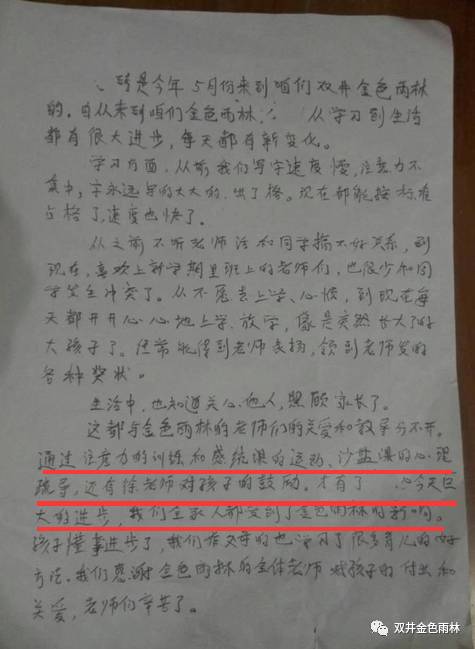 转是今年5月份来到咱们双井金色雨林
的。自从来到咱们金色雨林, 从学习到生活
都有很大进步,每天都有新变化。
学习方面,从前我们写字速度慢,注意力不
集中,字永远写的大大的,出了格。现在都能按标准
占格了,速度也快了。
从之前不听老师话和同学搞不好关系,到
现在,喜欢上新学期里班上的老师们,也很少和同
学发生冲突了。从不愿去上学、心烦,到现在每
天都开开心心地上学、放学,像是突然长大了的
大孩子了。经常能得到老师表扬,领到老师发的
各种奖状。
生活中,也知道关心他人,照顾家长了。
这都与金色雨林的老师们的关爱和教导分不开。
通过注意力的训练和感统课的运动、沙盘课的心理
疏导,还有徐老师对孩子的鼓励。才有了 今天巨
大的进步,我们全家人都受到了金色雨林的影响。
孩子懂事进步了,我们作父母的也学习了很多育儿的好
方法。我们感谢金色雨林的全体老师对孩子的付出和
关爱,老师们辛苦了。
双井金色雨林